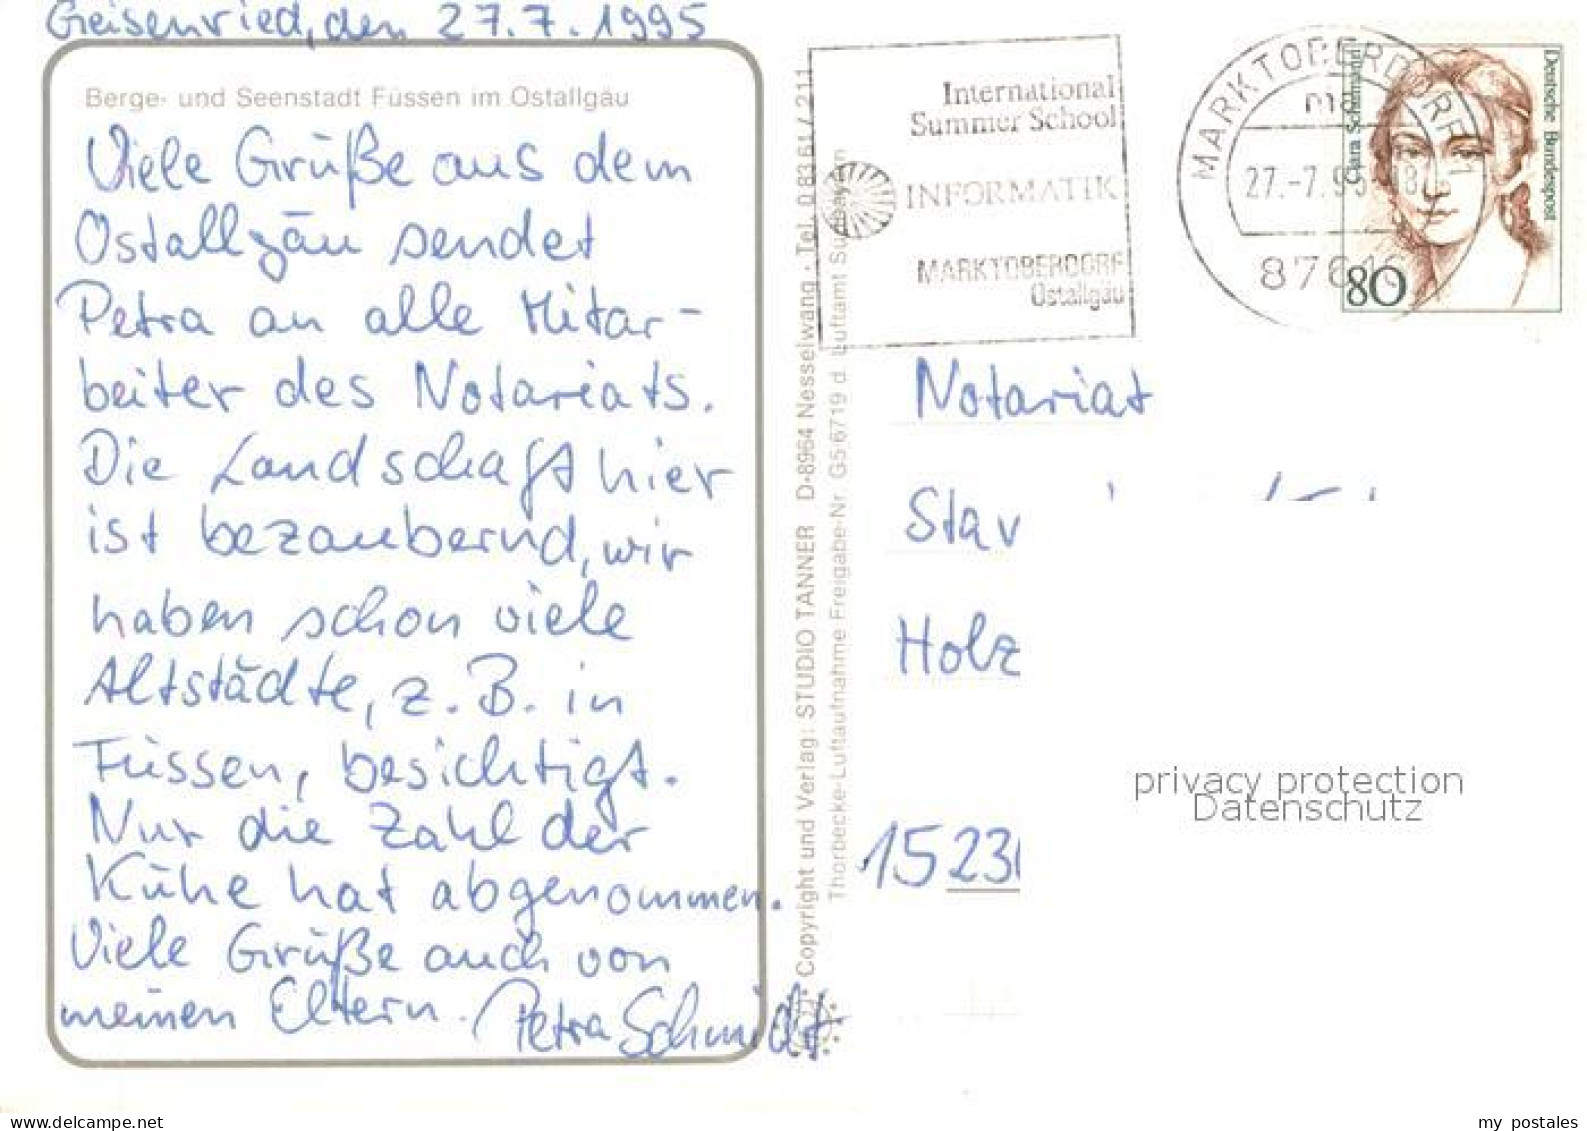 Geisenried, den 27.7.1995
Berge- und Seenstadt Füssen im Ostallgäu
Viele Grüße aus dem
Ostallgäu sendet
Petra an alle Mitar-
beiter des Notariats.
Die Landschaft hier
ist bezaubernd, wir
haben schon viele
Altstädte, z. B. in
Füssen, besichtigt.
Nur die Zahl der
Kühe hat abgenommen.
Viele Grüße auch von
meinen Eltern. Petra Schmidt
Copyright und Verlag: STUDIO TANNER D-8964 Nesselwang · Tel. 0 83 61 / 211
Thorbecke-Luftaufnahme Freigabe-Nr. G5 6719 d. Luftamt Südbayern
International
Summer School
INFORMATIK
MARKTOBERDORF
Ostallgäu
MARKTOBERDORF 1
ma
27.-7.95
87616
Clara Schumann
Deutsche Bundespost
80
Notariat
Stav
Holz
1523
privacy protection
Datenschutz
www.delcampe.net
my_postales